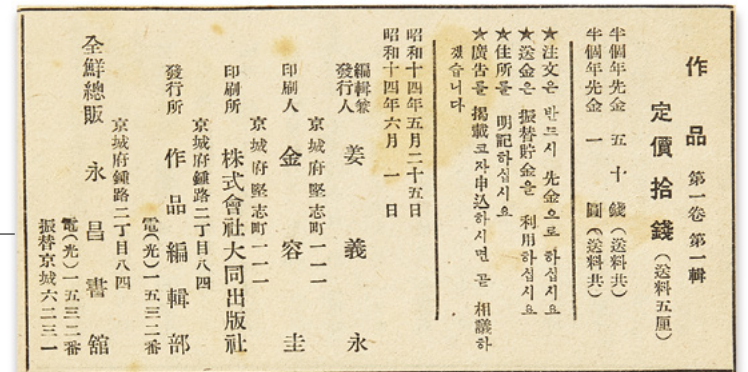 作品 第一卷 第一輯
定價拾錢 (送料五厘)
半個年先金 五十錢 (送料共)
半個年先金 一圓 (送料共)
★注文은 반드시 先金으로 하십시요
★送金은 振替貯金을 利用하십시요
★住所를 明記하십시요
★廣告를 揭載코자申込하시면 곧 相議하
겠습니다
昭和十四年五月二十五日
昭和十四年六月 一日
編輯兼發行人 姜義永
京城府堅志町一一一
印刷人 金容圭
京城府堅志町一一一
印刷所 株式會社大同出版社
京城府鍾路二丁目八四
發行所 作品編輯部
電(光)一五三二番
京城府鍾路二丁目八四
全鮮總販 永昌書舘
電(光)一五三二番
振替京城六二三一